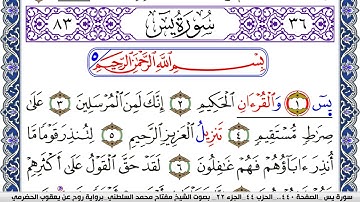 ٨٣ سُورَةُ يسٓ ٣٦
بِسْمِ اللَّهِ الرَّحْمَٰنِ الرَّحِيمِ
يسٓ ١ وَالْقُرْءَانِ الْحَكِيمِ ٢ إِنَّكَ لَمِنَ الْمُرْسَلِينَ ٣ عَلَىٰ
صِرَٰطٍ مُّسْتَقِيمٍ ٤ تَنزِيلُ الْعَزِيزِ الرَّحِيمِ ٥ لِتُنذِرَ قَوْمًا مَّا
أُنذِرَ ءَابَآؤُهُمْ فَهُمْ غَٰفِلُونَ ٦ لَقَدْ حَقَّ الْقَوْلُ عَلَىٰٓ أَكْثَرِهِمْ
سورة يس _ الصفحة ٤٤٠ _ الحزب ٤٤ _ الجزء ٢٢ _ بصوت الشيخ مفتاح محمد السلطني _ برواية روح عن يعقوب الحضرمي